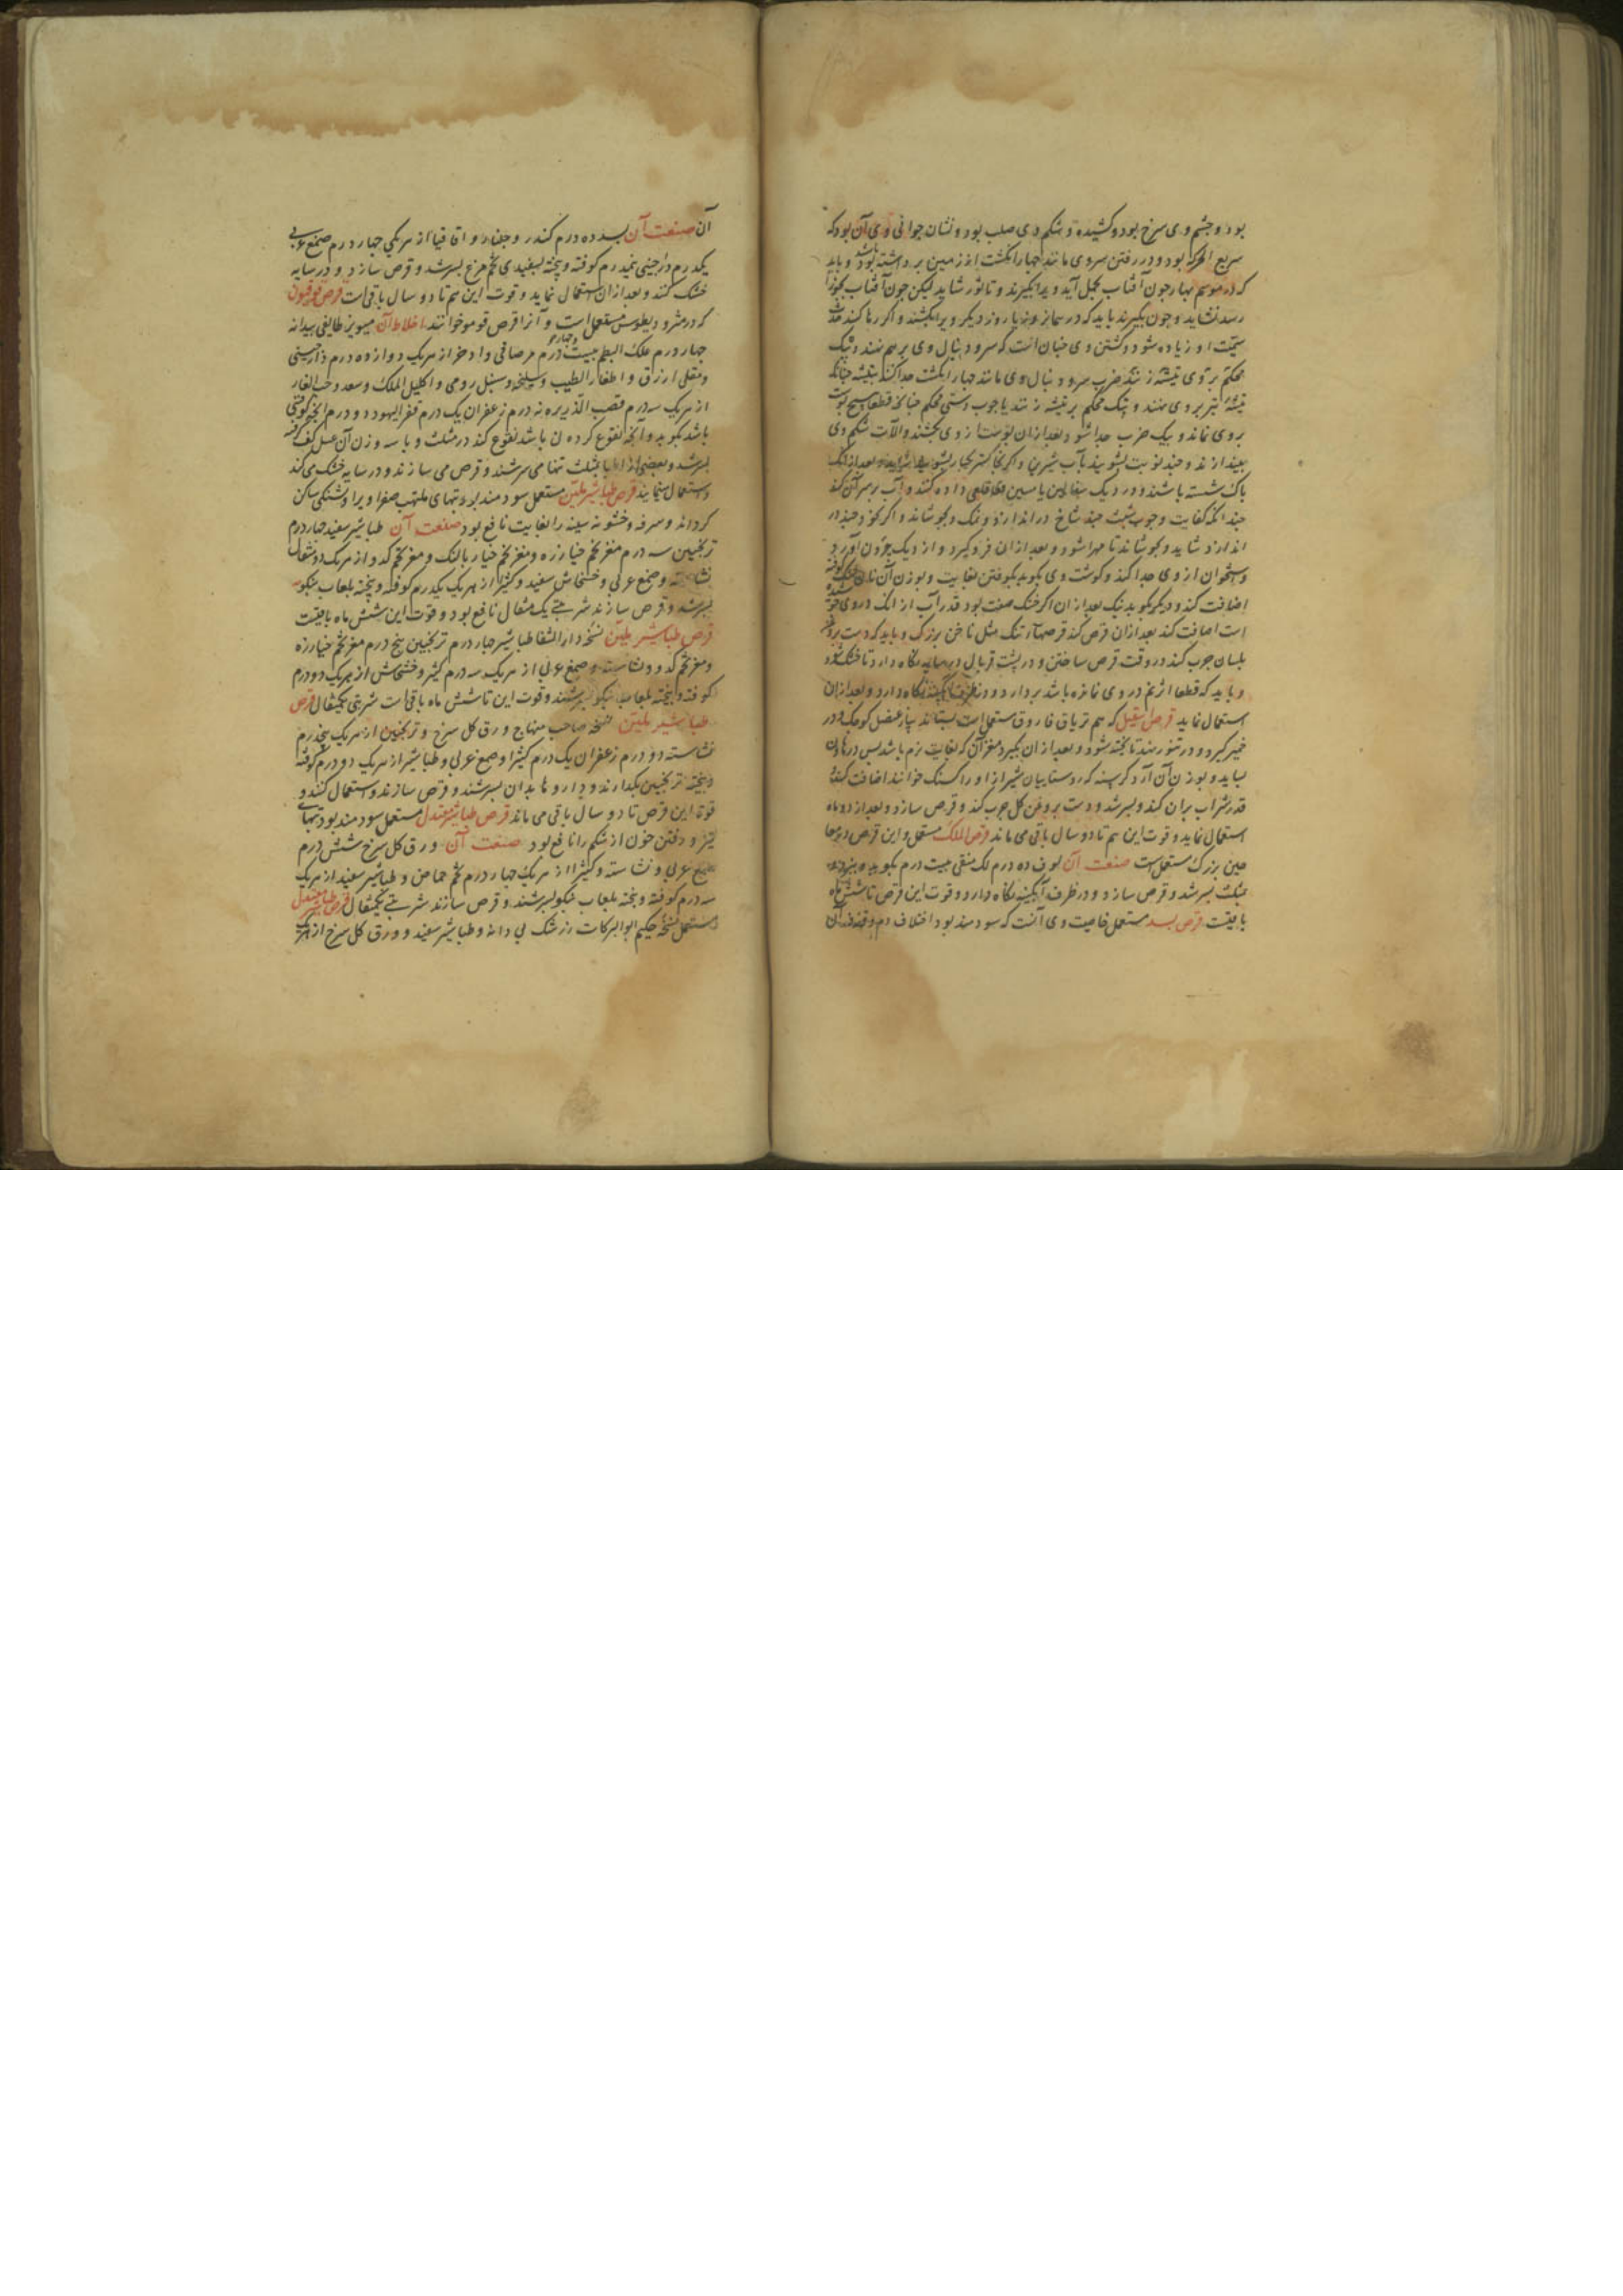 بود و چشم وی سرخ بود و کشیده و شکم وی صلب بود و نشان جوانی وی آن بود که
سریع الحرکه بود و در رفتن سر وی مانند چهار انگشت از زمین برداشته بود و باید
که در موسم بهار چون آفتاب بحمل آید ویرا بگیرند و تا ثور شاید لیکن چون آفتاب بجوزا
رسد نشاید و چون بگیرند باید که در همان روز یا روز دیگر ویرا بکشند و اگر رها کنند
سمیت او زیاده شود و کشتن وی چنان است که سر و دنبال وی بر هم نهند و نیک
محکم بر وی تیشه زنند ضرب سر و دنبال وی مانند چهار انگشت جدا کنند بتیشه چنانکه
تیشه تیز بر وی نهند و نیک محکم بر تیشه زنند یا چوب دستی محکم چنانکه قطعا هیچ پوست
بر وی نماند و بیک ضرب جدا شود و بعد از آن پوست از وی بکشند و آلات شکم وی
بیندازند و چند نوبت بشویند بآب شیرین و اگر بخاکستر بشویند شاید و بعد از آنک
پاک شسته باشند و در دیک سفالین یا مسین قلعی داده کنند و آب بر سر آن کنند
چندانکه کفایت و چوب شبت چند شاخ در اندازند و نمک و بجوشاند و اگر
اندازد شاید و بجوشاند تا مهرا شود و بعد از آن فرو گیرد و از دیک بیرون آورد
و استخوان از وی جدا کند و گوشت وی بکوبد بکوفتن بغایت و بوزن آن نان خشک کوفته
اضافت کند و دیگر بکوبد نیک بعد از آن اگر خشک صفت بود قدر آب از آنک در وی
است اضافت کند بعد از آن قرص کند قرصهاء تنک مثل ناخن بزرگ و باید که دست بروغن
بلسان چرب کند در وقت قرص ساختن و در پشت غربال در سایه نگاه دارد تا خشک شود
و باید که قطعا اثر نم در وی نمانده باشد بردارد و در ظرف آبگینه نگاه دارد و بعد از آن
استعمال نماید قرص اسقیل که هم تریاق فاروق مستعمل است بستاند پیاز عنصل کوچک و در
خمیر گیرد و در تنور نهند تا پخته شود و بعد از آن بگیرد مغز آن که بغایت نرم باشد پس در هاون
بساید و بوزن آن آرد کرسنه که روستاییان شیراز او را کسنک خوانند اضافت کند
قدر شراب بر آن کند و بسرشد و دست بروغن گل چرب کند و قرص سازد و بعد از دو ماه
استعمال نماید و قوت این هم تا دو سال باقی می ماند قرص الملک مستعمل و این قرص در
معجین بزرگ مستعمل است صنعت آن لوف ده درم لک منقی بیست درم بکوبد و بپزد
بمثلث بسرشد و قرص سازد و در ظرف آبگینه نگاه دارد و قوت این قرص تا شش ماه
باقیست قرص بسد مستعمل خاصیت وی آنست که سودمند بود اختلاف دم و قذف آن
آن صنعت آن بسد ده درم کندر و جلنار و اقاقیا از هر یکی چهار درم صمغ عربی
یکدرم دارچینی نیمدرم کوفته و بیخته بسفیدی تخم مرغ بسرشد و قرص سازد و در سایه
خشک کنند و بعد از آن استعمال نماید و قوت این هم تا دو سال باقی است قرص قوفیون
که در مثرودیطوس مستعمل است و آنرا قرص قومو خوانند اخلاط آن مویز طایفی بیدانه
چهار درم علک البطم بیست و چهار درم مر صافی و اذخر از هر یک دوازده درم دارچینی
و مقل ازرق و اظفار الطیب و سلیخه و سنبل رومی و اکلیل الملک و سعد و حب الغار
از هر یک سه درم قصب الذریره نه درم زعفران یک درم قفر الیهود دو درم آنچه کوفتنی
باشد بکوبد و آنچه نقوع کردنی باشد نقوع کند در مثلث و با سه وزن آن عسل کف گرفته
بسرشد و بعضی از اطبا بمثلث تنها می سرشند و قرص می سازند و در سایه خشک می کنند
و استعمال مینمایند قرص طباشیر ملین مستعمل سودمند بود تبهای ملتهب صفراوی را و تشنگی ساکن
گرداند و سرفه و خشونه سینه را بغایت نافع بود صنعت آن طباشیر سفید چهار درم
ترنجبین سه درم مغز تخم خیارزه و مغز تخم خیار بالنک و مغز تخم کدو از هر یک دو مثقال
نشاسته و صمغ عربی و خشخاش سفید و کثیرا از هر یک یکدرم کوفته و بیخته بلعاب بنکو
بسرشد و قرص سازند شربتی یک مثقال نافع بود و قوت این شش ماه باقیست
قرص طباشیر ملین نسخه دار الشفا طباشیر چهار درم ترنجبین پنج درم مغز تخم خیارزه
و مغز تخم کدو و نشاسته و صمغ عربی از هر یک سه درم کثیرا و خشخاش از هر یک دو درم
کوفته و بیخته بلعاب بنکو بسرشند و قوت این تا شش ماه باقی است شربتی یکمثقال قرص
طباشیر ملین نسخه صاحب منهاج ورق گل سرخ و ترنجبین از هر یک پنجدرم
نشاسته دو درم زعفران یک درم کثیرا و صمغ عربی و طباشیر از هر یک دو درم کوفته
و بیخته ترنجبین بگدازند و داروها بدان بسرشند و قرص سازند و استعمال کنند و
قوت این قرص تا دو سال باقی می ماند قرص طباشیر معتدل مستعمل سودمند بود تبهای
تیز و رفتن خون از شکم را نافع بود صنعت آن ورق گل سرخ شش درم
صمغ عربی و نشاسته و کثیرا از هر یک چهار درم تخم حماض و طباشیر سفید از هر یک
سه درم کوفته و بیخته بلعاب بنکو بسرشند و قرص سازند شربتی یکمثقال قرص طباشیر معتدل
مستعمل نسخه حکیم ابو البرکات زرشک بی دانه و طباشیر سفید و ورق گل سرخ از هر یک